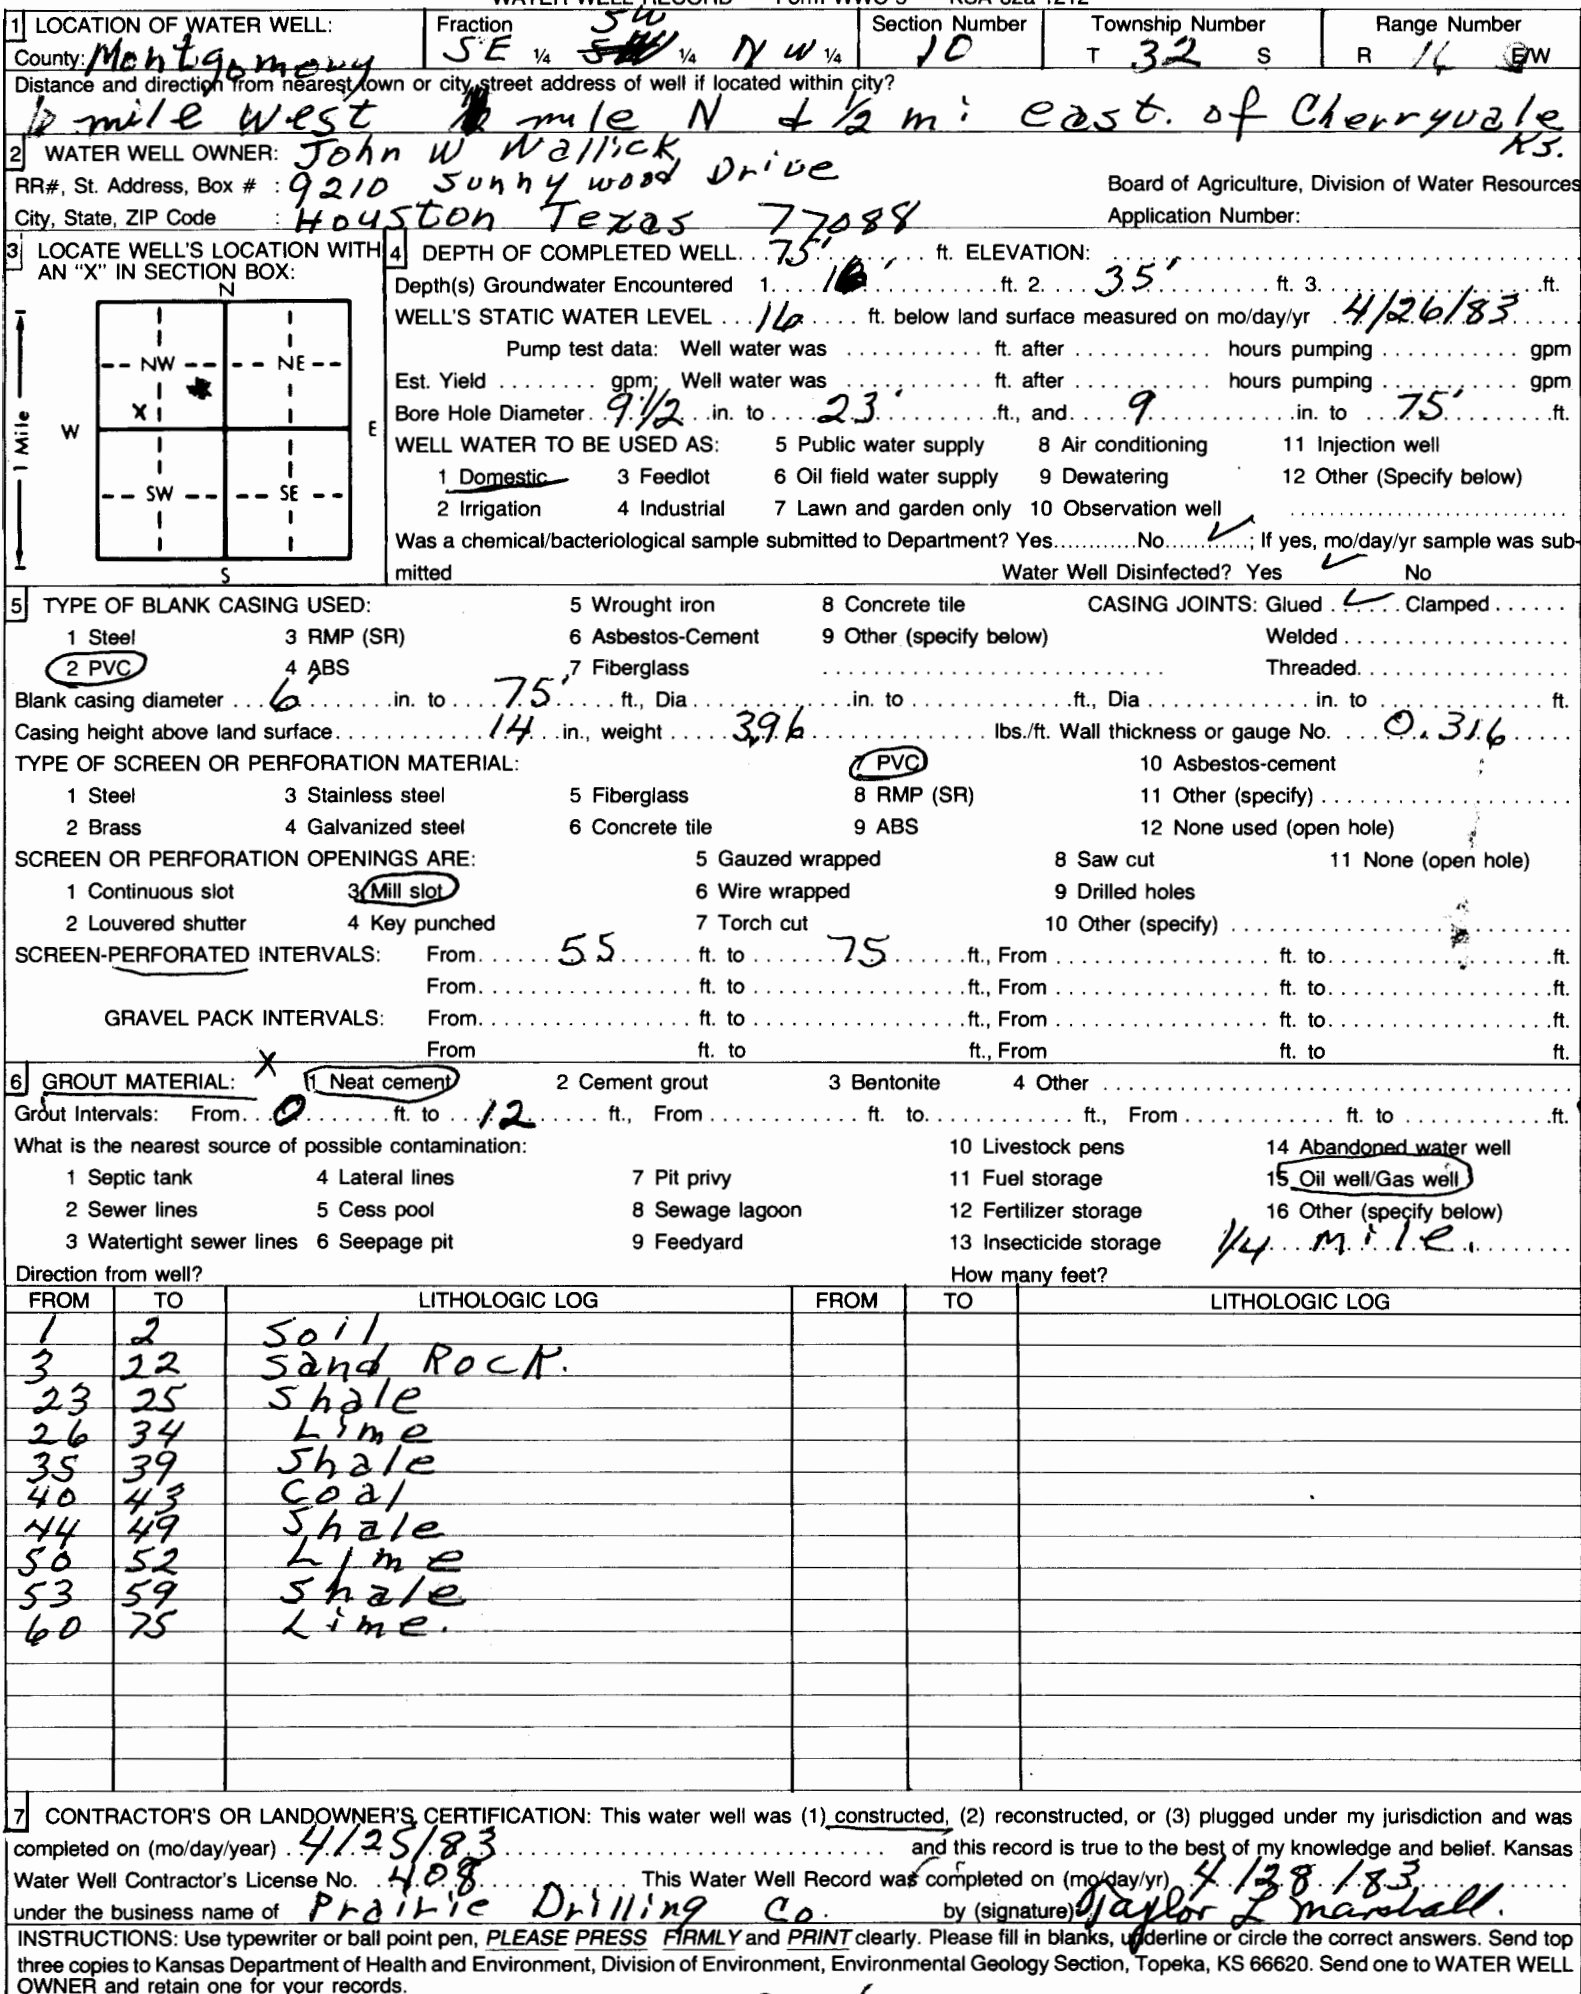 WATER WELL RECORD Form WWC-5 KSA 82a-1212
1 LOCATION OF WATER WELL: Fraction SW Section Number Township Number Range Number
County: Montgomery SE ¼ ¼ NW ¼ 10 T 32 S R 16 E/W
Distance and direction from nearest town or city street address of well if located within city?
mile west mile N & 1/2 mi east. of Cherryvale Ks.
2 WATER WELL OWNER: John W Wallick
RR#, St. Address, Box # : 9210 Sunnywood Drive Board of Agriculture, Division of Water Resources
City, State, ZIP Code : Houston Texas 77088 Application Number:
3 LOCATE WELL'S LOCATION WITH AN "X" IN SECTION BOX:
N
NW NE
X
W E
1 Mile
SW SE
S
4 DEPTH OF COMPLETED WELL... 75' ... ft. ELEVATION: ...
Depth(s) Groundwater Encountered 1. ... ft. 2. 35' ft. 3. ... ft.
WELL'S STATIC WATER LEVEL ... 16 ... ft. below land surface measured on mo/day/yr 4/26/83
Pump test data: Well water was ... ft. after ... hours pumping ... gpm
Est. Yield ... gpm; Well water was ... ft. after ... hours pumping ... gpm
Bore Hole Diameter 9 1/2 in. to 23' ft., and 9 in. to 75' ft.
WELL WATER TO BE USED AS: 5 Public water supply 8 Air conditioning 11 Injection well
1 Domestic 3 Feedlot 6 Oil field water supply 9 Dewatering 12 Other (Specify below)
2 Irrigation 4 Industrial 7 Lawn and garden only 10 Observation well ...
Was a chemical/bacteriological sample submitted to Department? Yes...No... ✓ ...; If yes, mo/day/yr sample was sub-
mitted Water Well Disinfected? Yes ✓ No
5 TYPE OF BLANK CASING USED: 5 Wrought iron 8 Concrete tile CASING JOINTS: Glued ✓ Clamped ...
1 Steel 3 RMP (SR) 6 Asbestos-Cement 9 Other (specify below) Welded ...
2 PVC 4 ABS 7 Fiberglass ... Threaded...
Blank casing diameter 6" in. to 75' ft., Dia ... in. to ... ft., Dia ... in. to ... ft.
Casing height above land surface... 14 in., weight 3.96 lbs./ft. Wall thickness or gauge No. 0.316
TYPE OF SCREEN OR PERFORATION MATERIAL: 7 PVC 10 Asbestos-cement
1 Steel 3 Stainless steel 5 Fiberglass 8 RMP (SR) 11 Other (specify) ...
2 Brass 4 Galvanized steel 6 Concrete tile 9 ABS 12 None used (open hole)
SCREEN OR PERFORATION OPENINGS ARE: 5 Gauzed wrapped 8 Saw cut 11 None (open hole)
1 Continuous slot 3 Mill slot 6 Wire wrapped 9 Drilled holes
2 Louvered shutter 4 Key punched 7 Torch cut 10 Other (specify) ...
SCREEN-PERFORATED INTERVALS: From 55 ft. to 75 ft., From ... ft. to ... ft.
From ... ft. to ... ft., From ... ft. to ... ft.
GRAVEL PACK INTERVALS: From ... ft. to ... ft., From ... ft. to ... ft.
From ft. to ft., From ft. to ft.
6 GROUT MATERIAL: X 1 Neat cement 2 Cement grout 3 Bentonite 4 Other ...
Grout Intervals: From 0 ft. to 12 ft., From ... ft. to ... ft., From ... ft. to ... ft.
What is the nearest source of possible contamination: 10 Livestock pens 14 Abandoned water well
1 Septic tank 4 Lateral lines 7 Pit privy 11 Fuel storage 15 Oil well/Gas well
2 Sewer lines 5 Cess pool 8 Sewage lagoon 12 Fertilizer storage 16 Other (specify below)
3 Watertight sewer lines 6 Seepage pit 9 Feedyard 13 Insecticide storage 1/4 mile.
Direction from well? How many feet?
FROM TO LITHOLOGIC LOG FROM TO LITHOLOGIC LOG
1 2 Soil
3 22 Sand Rock.
23 25 Shale
26 34 Lime
35 39 Shale
40 43 Coal
44 49 Shale
50 52 Lime
53 59 Shale
60 75 Lime.
7 CONTRACTOR'S OR LANDOWNER'S CERTIFICATION: This water well was (1) constructed, (2) reconstructed, or (3) plugged under my jurisdiction and was
completed on (mo/day/year) 4/25/83 and this record is true to the best of my knowledge and belief. Kansas
Water Well Contractor's License No. 408 This Water Well Record was completed on (mo/day/yr) 4/28/83
under the business name of Prairie Drilling Co. by (signature) Taylor L Marshall.
INSTRUCTIONS: Use typewriter or ball point pen, PLEASE PRESS FIRMLY and PRINT clearly. Please fill in blanks, underline or circle the correct answers. Send top
three copies to Kansas Department of Health and Environment, Division of Environment, Environmental Geology Section, Topeka, KS 66620. Send one to WATER WELL
OWNER and retain one for your records.